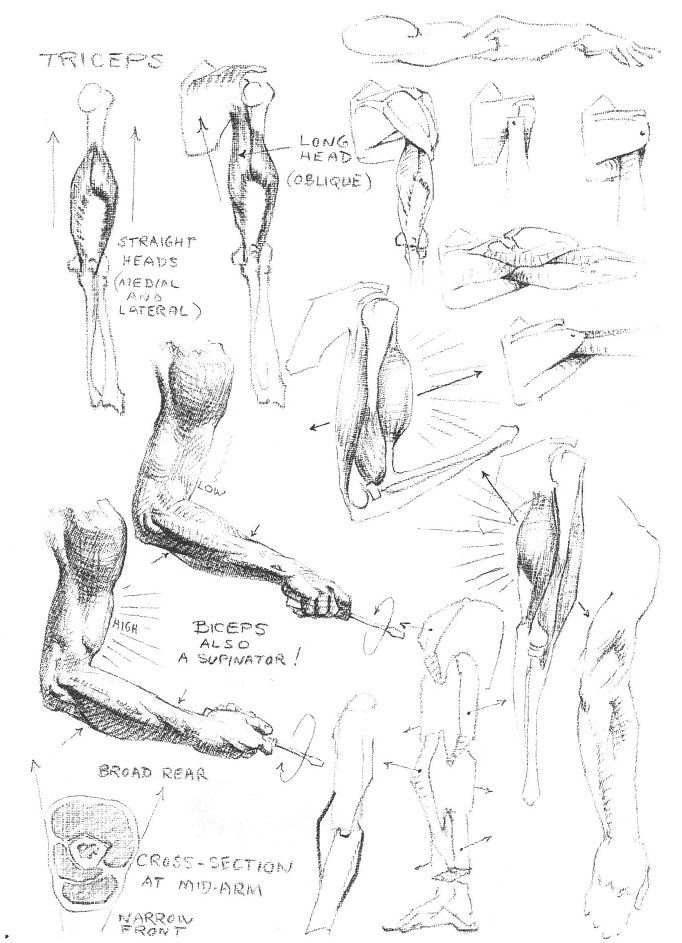 TRICEPS
LONG
HEAD
(OBLIQUE)
STRAIGHT
HEADS
(MEDIAL
AND
LATERAL)
LOW
HIGH
BICEPS
ALSO
A SUPINATOR!
BROAD REAR
CROSS-SECTION
AT MID-ARM
NARROW
FRONT